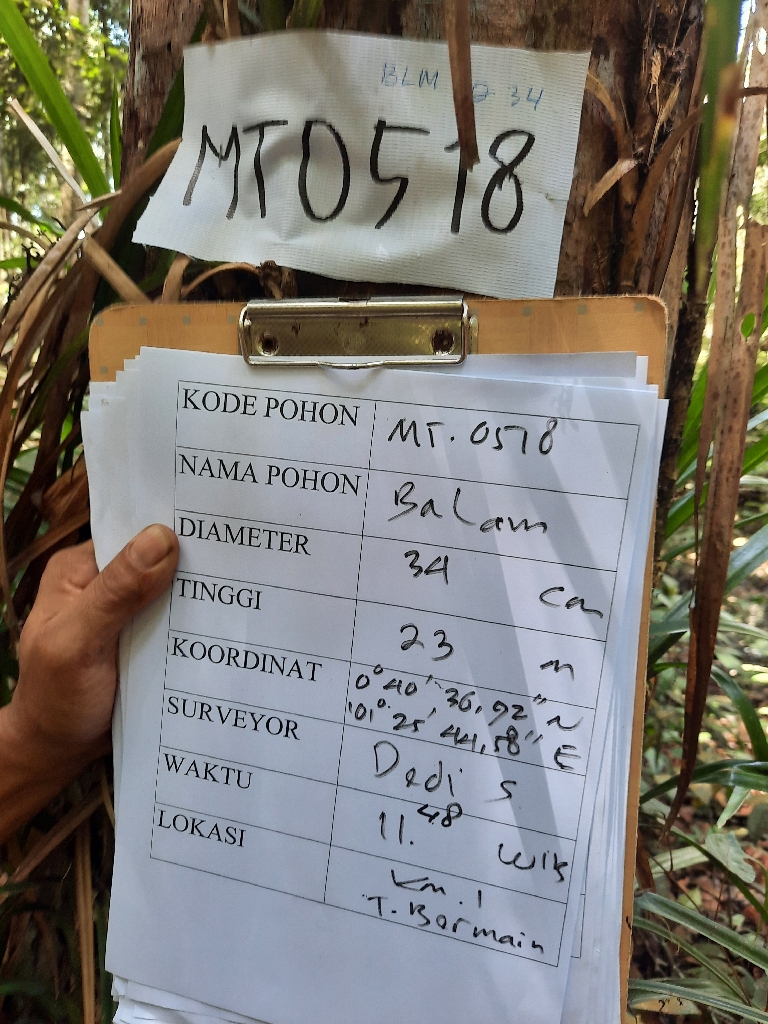 BLM Ø 34
MT0518
KODE POHON MT. 0518
NAMA POHON Balam
DIAMETER 34 cm
TINGGI 23 m
KOORDINAT 0° 40' 36,92" N
101° 25' 44,58" E
SURVEYOR Dedi S
WAKTU 11.48 WIB
LOKASI Km. 1
T. Bormain